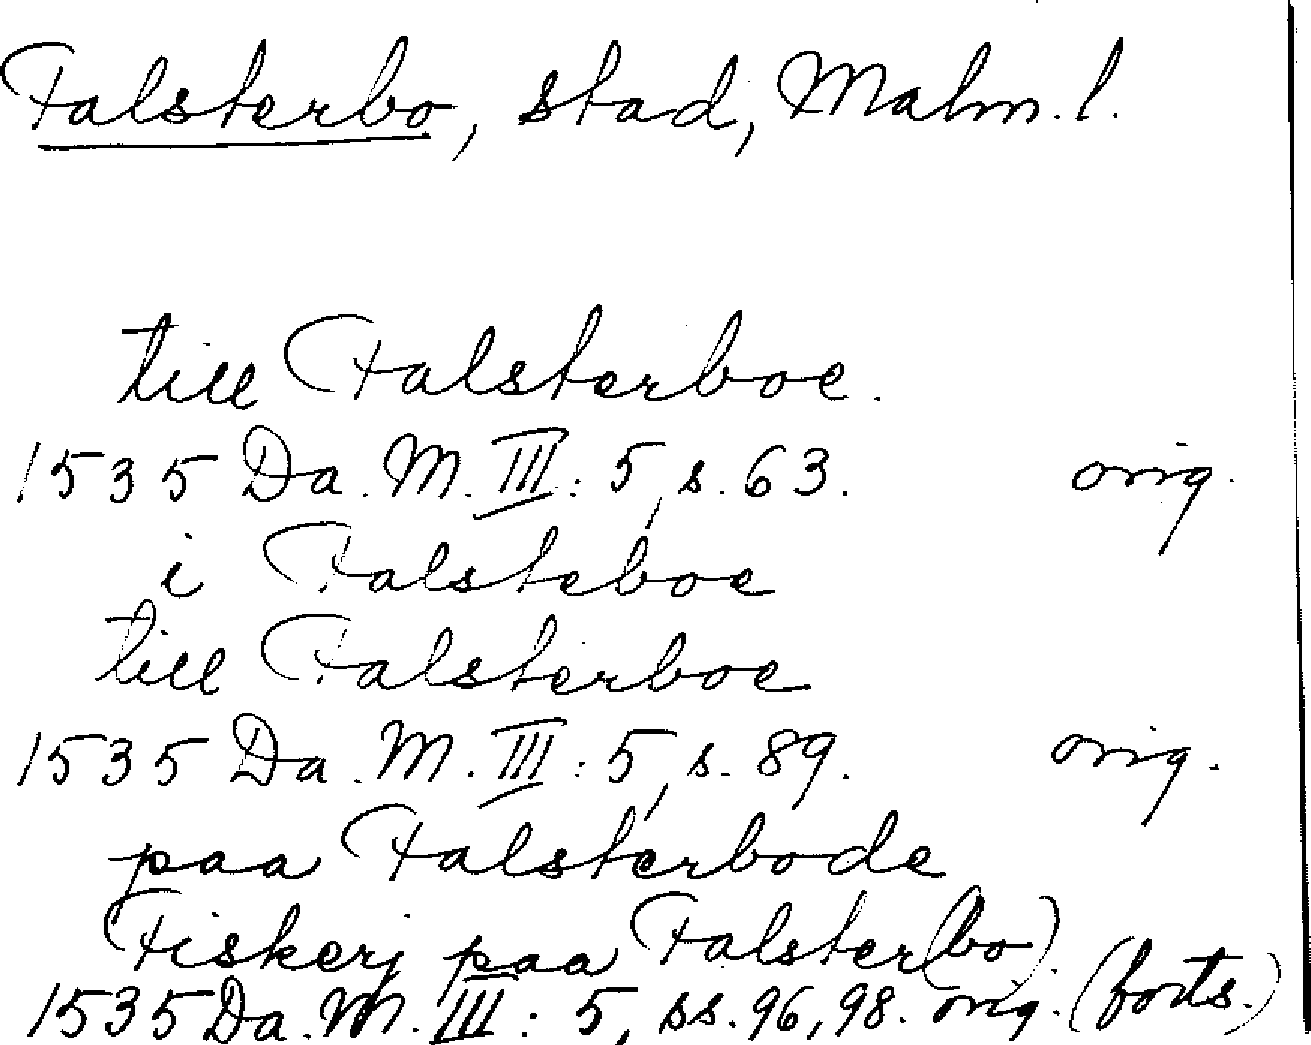 Falsterbo, stad, Malm. l.
till Falsterboe.
1535 Da. M. III: 5, s. 63. orig.
i Falsteboe
till Falsterboe
1535 Da. M. III: 5, s. 89. orig.
paa Falsterbode
Fiskerj paa Falster(bo).
1535 Da. M. III: 5, ss. 96, 98. orig. (forts.)